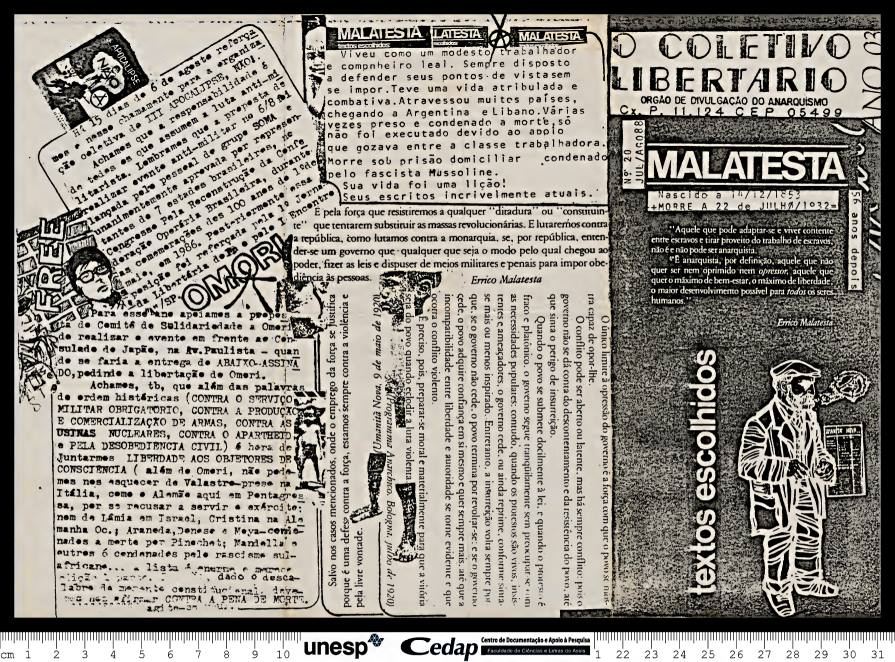 O COLETIVO
LIBERTÁRIO
ORGÃO DE DIVULGAÇÃO DO ANARQUISMO
Cx. P. 11.124 CEP 05499
ANO 03
Nº 20
JUL/AGO88
MALATESTA
Nascido a 14/12/1853
+MORRE A 22 de JUlHO/1932=
56 anos depois
"Aquele que pode adaptar-se e viver contente
entre escravos e tirar proveito do trabalho de escravos,
não é e não pode ser anarquista.
"É anarquista, por definição, aquele que não
quer ser nem oprimido nem opressor, aquele que
quer o máximo de bem-estar, o máximo de liberdade,
o maior desenvolvimento possível para todos os seres
humanos."
Errico Malatesta
textos escolhidos
MALATESTA
textos escolhidos:
LATESTA
escolhidos:
MALATESTA
Viveu como um modesto trabalhador
e companheiro leal. Sempre disposto
a defender seus pontos de vistasem
se impor.Teve uma vida atribulada e
combativa.Atravessou muitos países,
chegando a Argentina eLibano.Várias
vezes preso e condenado a morte,só
não foi executado devido ao apoio
que gozava entre a classe trabalhadora.
Morre sob prisão domiciliar condenado
pelo fascista Mussoline.
Sua vida foi uma lição!
Seus escritos incrivelmente atuais.
É pela força que resistiremos a qualquer "ditadura" ou "constituin-
te" que tentarem substituir as massas revolucionárias. E lutaremos contra
a república, como lutamos contra a monarquia, se, por república, enten-
der-se um governo que qualquer que seja o modo pelo qual chegou ao
poder, fizer as leis e dispuser de meios militares e penais para impor obe-
diência às pessoas.
Errico Malatesta
O único limite à opressão do governo é a força com que o povo se mos-
tra capaz de opor-lhe.
O conflito pode ser aberto ou latente, mas há sempre conflito; pois o
governo não se dá conta do descontentamento e da resistência do povo, até
que sinta o perigo de insurreição.
Quando o povo se submete docilmente à lei, e quando o protesto é
fraco e platônico, o governo segue tranquilamente sem preocupar-se com
as necessidades populares; contudo, quando os protestos são vivos, insis-
tentes e ameaçadores, o governo cede, ou ainda reprime, conforme sinta-
se mais ou menos inspirado. Entretanto, a insurreição volta sempre por
que, se o governo não cede, o povo termina por revoltar-se; e se o governo
cede, o povo adquire confiança em si mesmo e quer sempre mais, até que a
incompatibilidade entre liberdade e autoridade se torne evidente e que
ecloda o conflito violento.
É preciso, pois, preparar-se moral e materialmente para que a vitória
seja do povo quando eclodir a luta violenta.
(Programma Anarchico. Bologna, julho de 1920)
Salvo nos casos mencionados, onde o emprego da força se justifica
porque é uma defesa contra a força, estamos sempre contra a violência e
pela livre vontade.
(Umanità Nova, 9 de maio de 1920)
APOCALIPSE
NÃO
Há 15 dias de 6 de agosto reforça
mos o nosso chamamento para a organiza
ção coletiva do III APOCALIPSE, NÃO!
Achamos que a responsabilidade é
de todos os que assumem a luta anti-mi
litarista. Lembramos que a proposta de
realizar evento anti-militar no 6/8 foi
lançada pelo pessoal do grupo SOMA e
unanimemente aprovada por represen
tantes de 7 estados brasileiros, no
Congresso Pela Reconstrução da Confe
deração Operária Brasileira, durante
FREE
OMORI
Para esse ano apoiamos a propos
ta do Comitê de Solidariedade a Omori
de realizar o evento em frente ao Con
sulado do Japão, na Av.Paulista - quan
do se faria a entrega do ABAIXO-ASSINA
DO,pedindo a libertação de Omori.
Achamos, tb, que além das palavras
de ordem históricas (CONTRA O SERVIÇO
MILITAR OBRIGATORIO, CONTRA A PRODUÇÃO
E COMERCIALIZAÇÃO DE ARMAS, CONTRA AS
USINAS NUCLEARES, CONTRA O APARTHEID
e PELA DESOBEDIENCIA CIVIL) é hora de
Juntarmos LIBERDADE AOS OBJETORES DE
CONSCIÊNCIA ( além de Omori, não pode
mos nos esquecer de Valastro-preso na
Itália, como o Alemão aqui em Pentagres
sa, por se recusar a servir o exército;
nem de Lâmia em Israel, Cristina na Ale
manha Oc.; Araneda,Denoso e Moya-conde
nados a morte por Pinochet; Mandella e
outros 6 condenados pelo racismo sul-
africano... a lista é enorme e merece
dado o desca-
labro da
mos nos afirmar CONTRA A PENA DE MORTE.
cm 1 2 3 4 5 6 7 8 9 10
unesp
Cedap
Centro de Documentação e Apoio à Pesquisa
Faculdade de Ciências e Letras de Assis
1 22 23 24 25 26 27 28 29 30 31